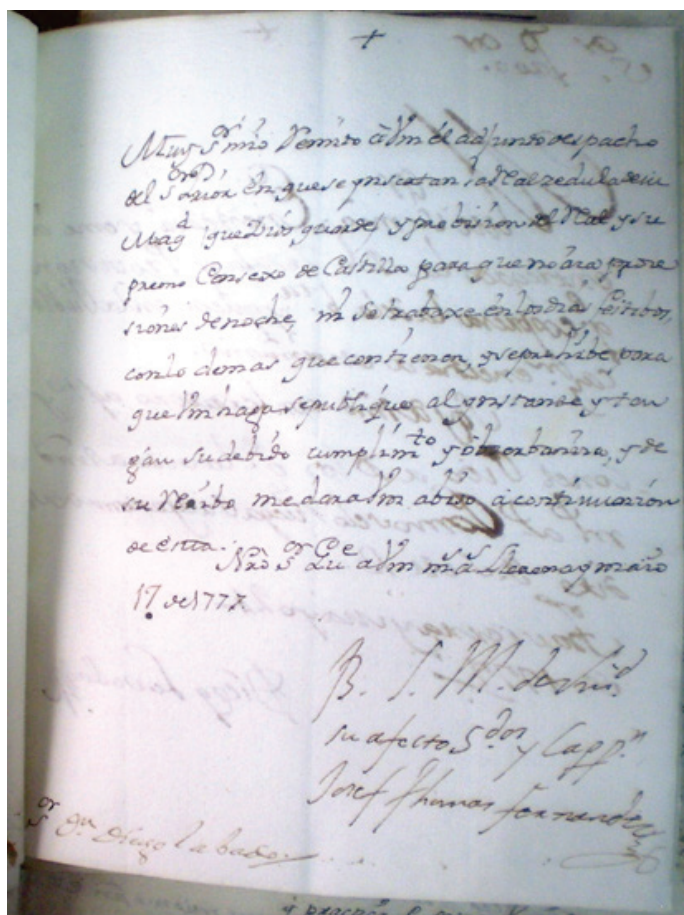 +
Muy Sr. mio Remito à Vm el adjunto despacho
del Sor. Prior en que se ynsertan la Rl zedula de su
Magd. que Dios guarde y probision del Rl y su
premo Consexo de Castilla para que no aia proce
siones de noche, ni se trabaxe en los dias festibos,
con lo demas que contienen, y se prescribe, para
que Vm haga se publique al ynstante y ten
gan su debido cumplimto. y obserbanzia, y de
su Rezibo me dara Vm abiso à continuazion
de esta.
Nro Sor. Gue. a Vm ms. as. Llerena y maio
17 de 1777
B. L. M. de Vm
su afecto Sdor. y Cappn.
Josef Thomas Fernandez
Sor. Dn. Diego Labador